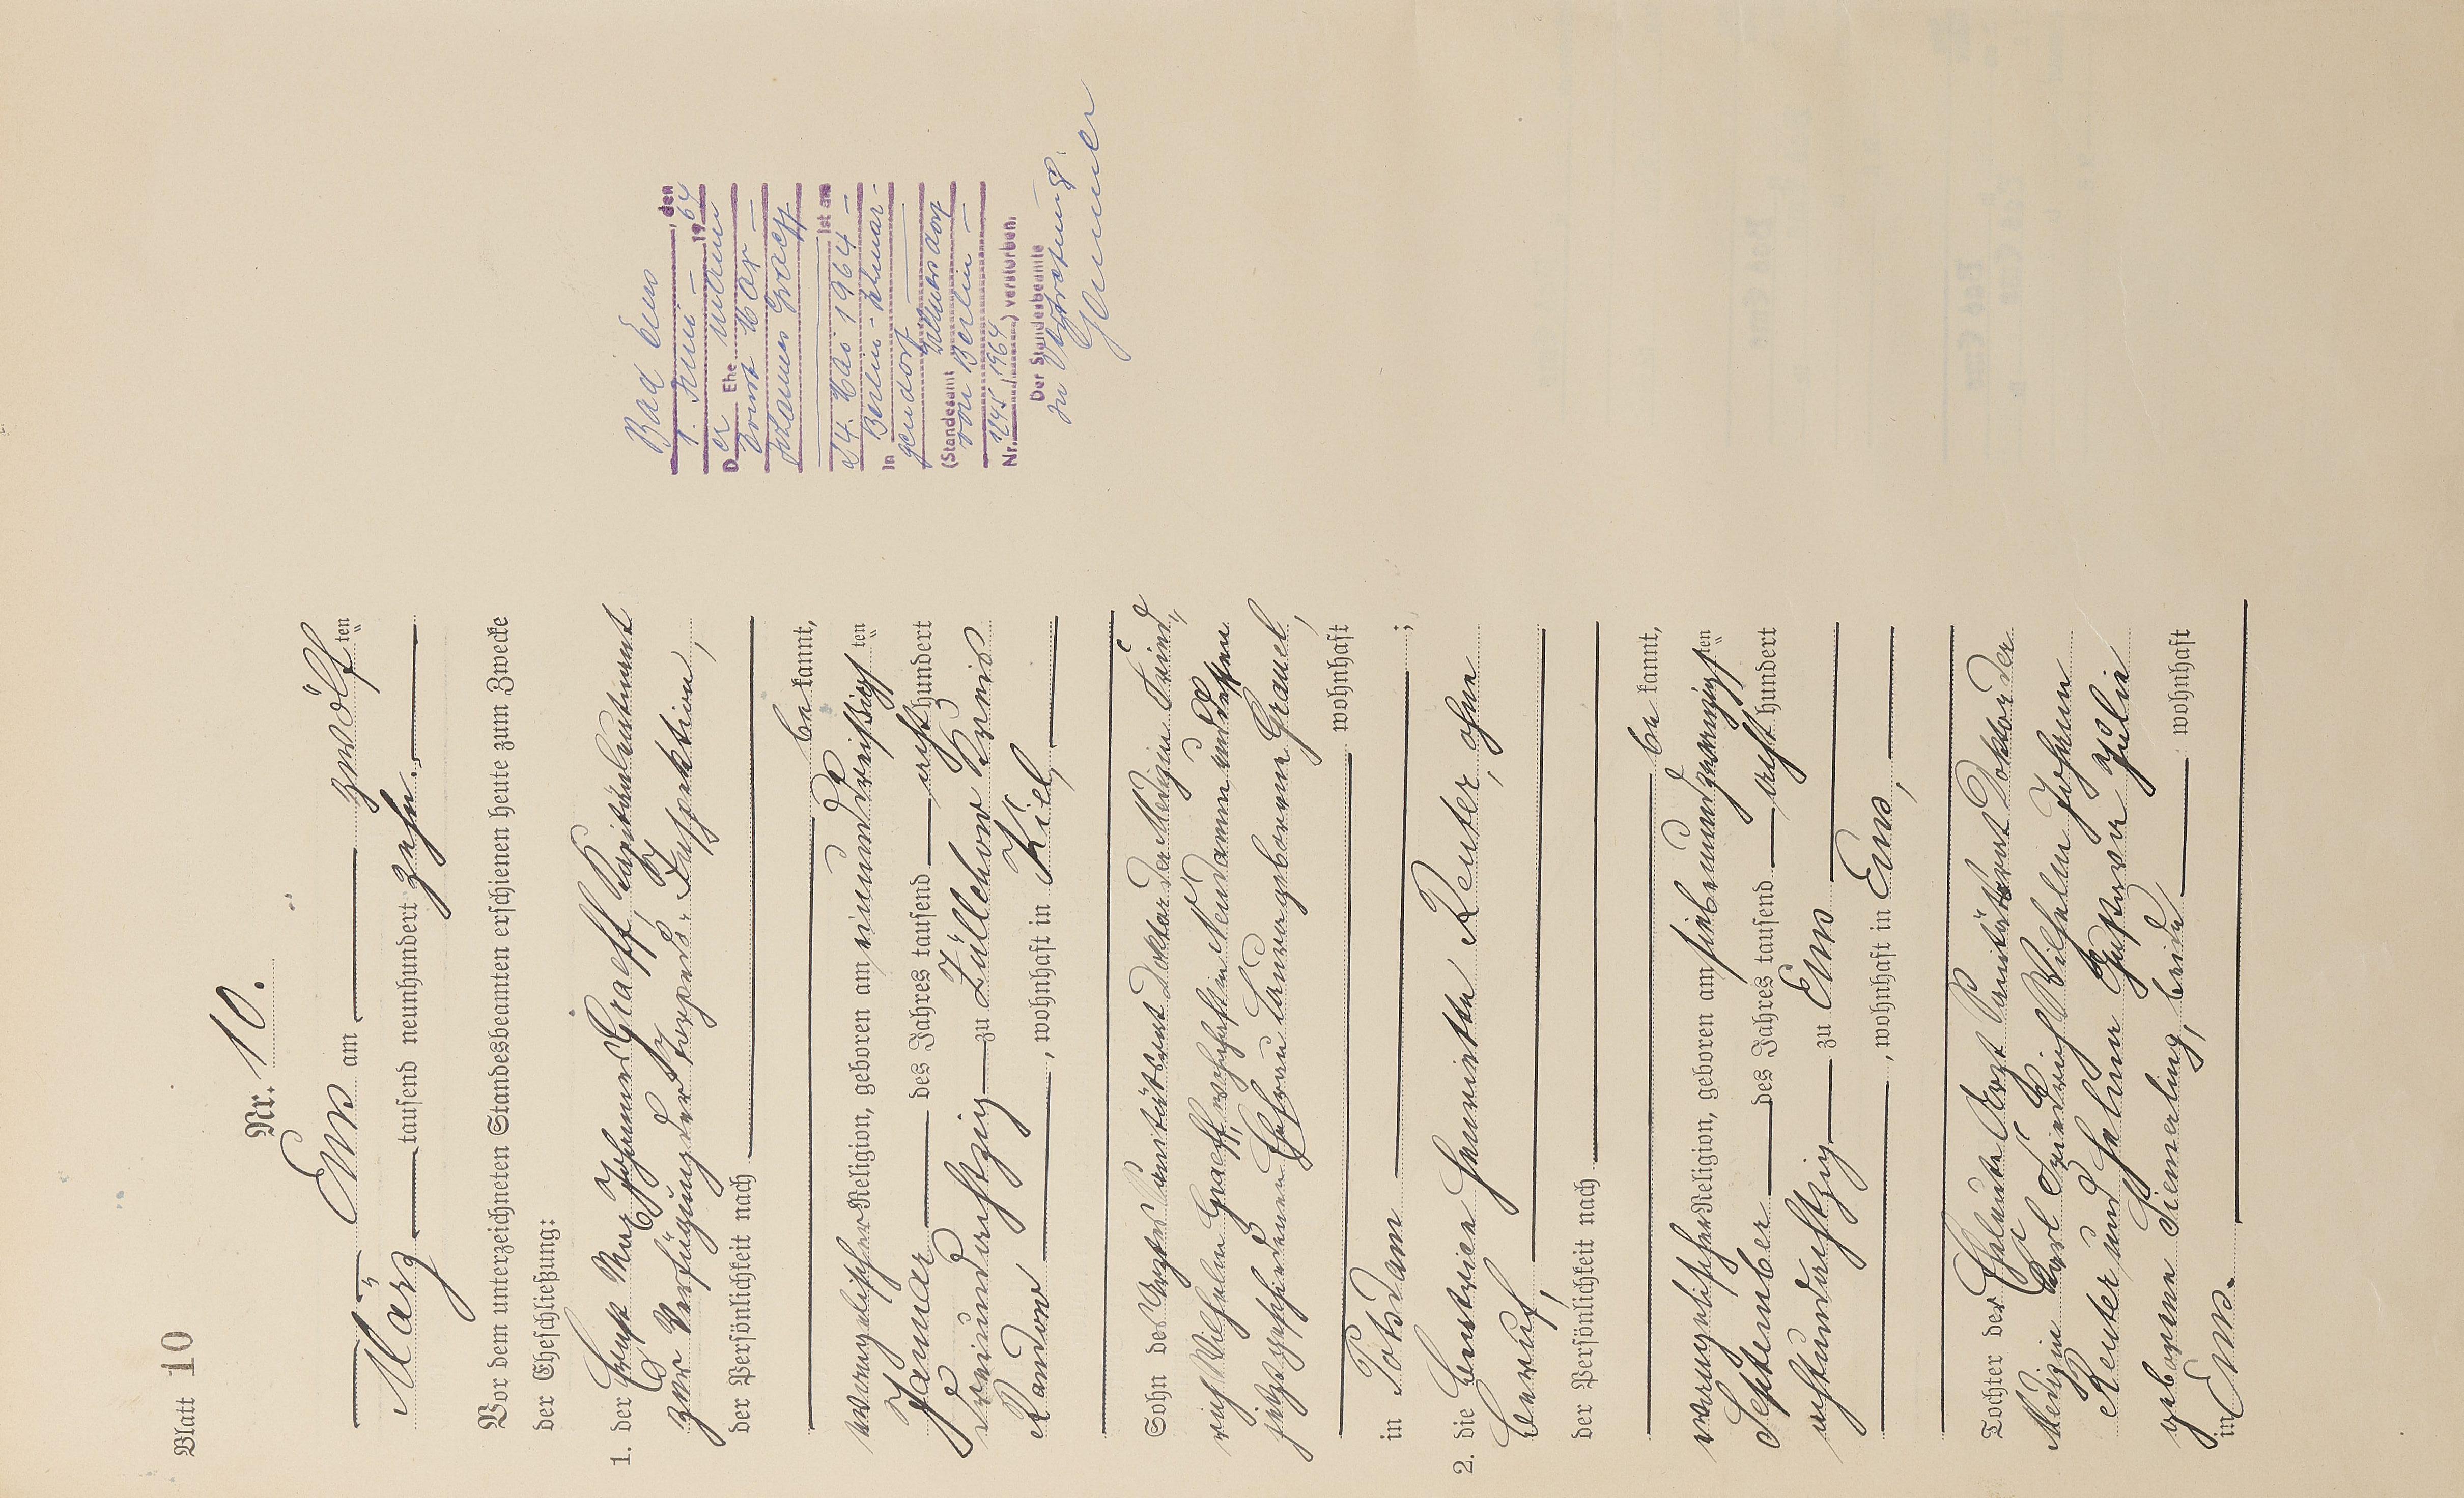 Blatt 10
Nr. 10.
Ems am zwölften
März tausend neunhundert zehn.
Vor dem unterzeichneten Standesbeamten erschienen heute zum Zwecke
der Eheschließung:
1. der Ernst Max Johannes Graeff, Kapitänleutnant
zur Verfügung der Torpedo-Inspektion,
der Persönlichkeit nach
bekannt,
evangelischer Religion, geboren am einunddreißigsten
Januar des Jahres tausend achthundert
dreiundachtzig zu Züllchow Kreis
Randow, wohnhaft in Kiel,
Sohn des Arztes Sanitätsrat Doktor der Medizin Fried-
rich Wilhelm Graeff, wohnhaft in Neudamm und dessen
jetzt geschiedenen Ehefrau Laura geborene Grauel,
wohnhaft
in Potsdam;
2. die Beatrice Henriette Reuter, ohne
Beruf,
der Persönlichkeit nach
bekannt,
evangelischer Religion, geboren am siebenundzwanzigsten
September des Jahres tausend achthundert
achtundachtzig zu Ems
, wohnhaft in Ems,
Tochter der Eheleute Arzt Sanitätsrat Doktor der
Medizin Carl Friedrich Wilhelm Johann
Reuter und Helene Gustava Julie
geborene Siemerling, beide wohnhaft
in Ems.
Bad Ems, den
1. Juni 1964
Der Ehemann
Ernst Max
Johannes Graeff
ist am
24. Mai 1964
in Berlin-Schmar-
gendorf
(Standesamt Wilmersdorf
von Berlin
Nr. 1245/1964) verstorben.
Der Standesbeamte
In Vertretung